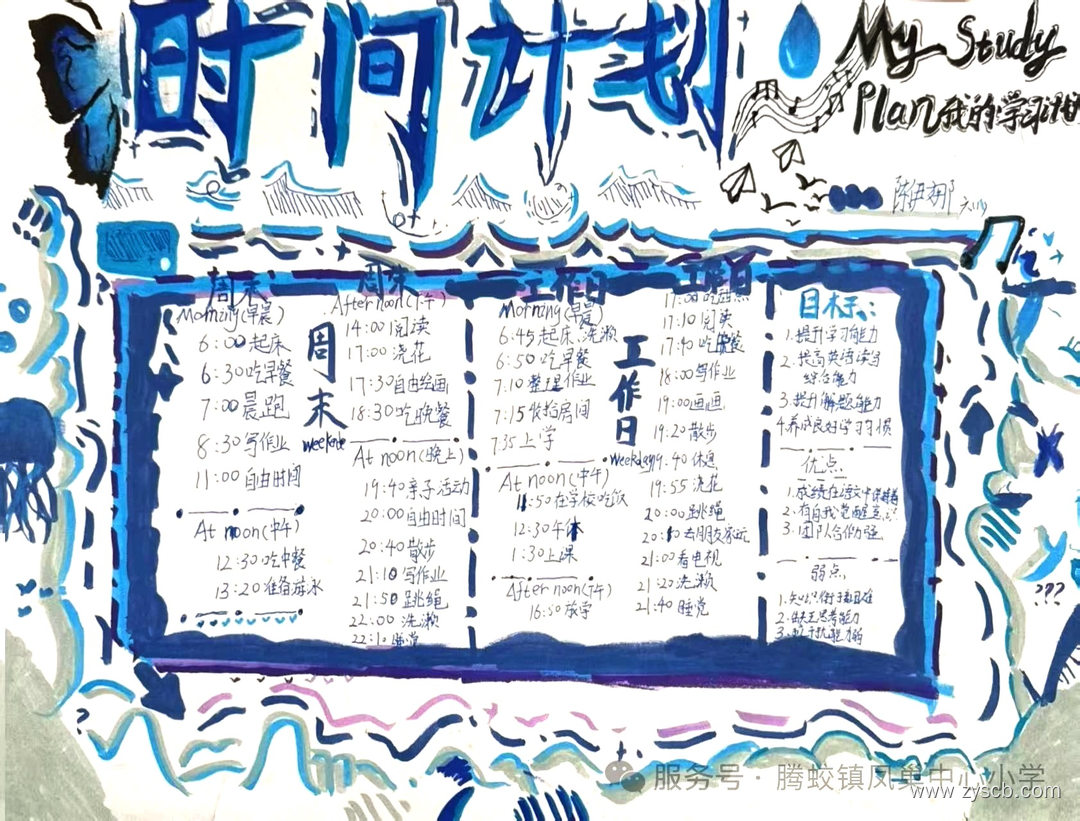 时间计划
My Study
Plan我的学习计划
陈伊娜
周末
Morning(早晨)
6:00起床
6:30吃早餐
7:00晨跑
8:30写作业
11:00自由时间
At noon(中午)
12:30吃中餐
13:20准备游水
周末
周末
Afternoon(下午)
14:00阅读
17:00浇花
17:30自由绘画
18:30吃晚餐
At noon(晚上)
19:40亲子活动
20:00自由时间
20:40散步
21:10写作业
21:50跳绳
22:00洗漱
22:10睡觉
工作日
Morning(早晨)
6:45起床、洗漱
6:50吃早餐
7:10整理作业
7:15收拾房间
7:35上学
At noon(中午)
11:50在学校吃饭
12:30午休
1:30上课
Afternoon(下午)
16:50放学
工作日
Weekday
工作日
17:00吃甜点
17:10阅读
17:40吃晚餐
18:00写作业
19:00画画
19:20散步
19:40休息
19:55浇花
20:00跳绳
20:10去朋友家玩
21:00看电视
21:20洗漱
21:40睡觉
目标:
1.提升学习能力
2.提高英语读写
综合能力
3.提升解题能力
4.养成良好学习习惯
优点
1.成绩在语文中
2.有自我觉醒意识
3.团队合作力强
弱点
2.缺乏思考能力
3.抗干扰能力弱
???
服务号·腾蛟镇凤巢中心小学
www.zyscb.com